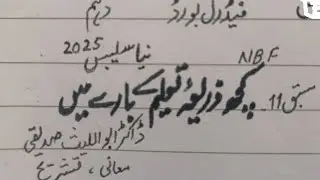 فیڈرل بورڈ دہم
نیا سلیبس 2025
NBF
سبق 11 کچھ ذریعۂ تعلیم کے بارے میں
ڈاکٹر ابواللیث صدیقی
معانی، تشریح